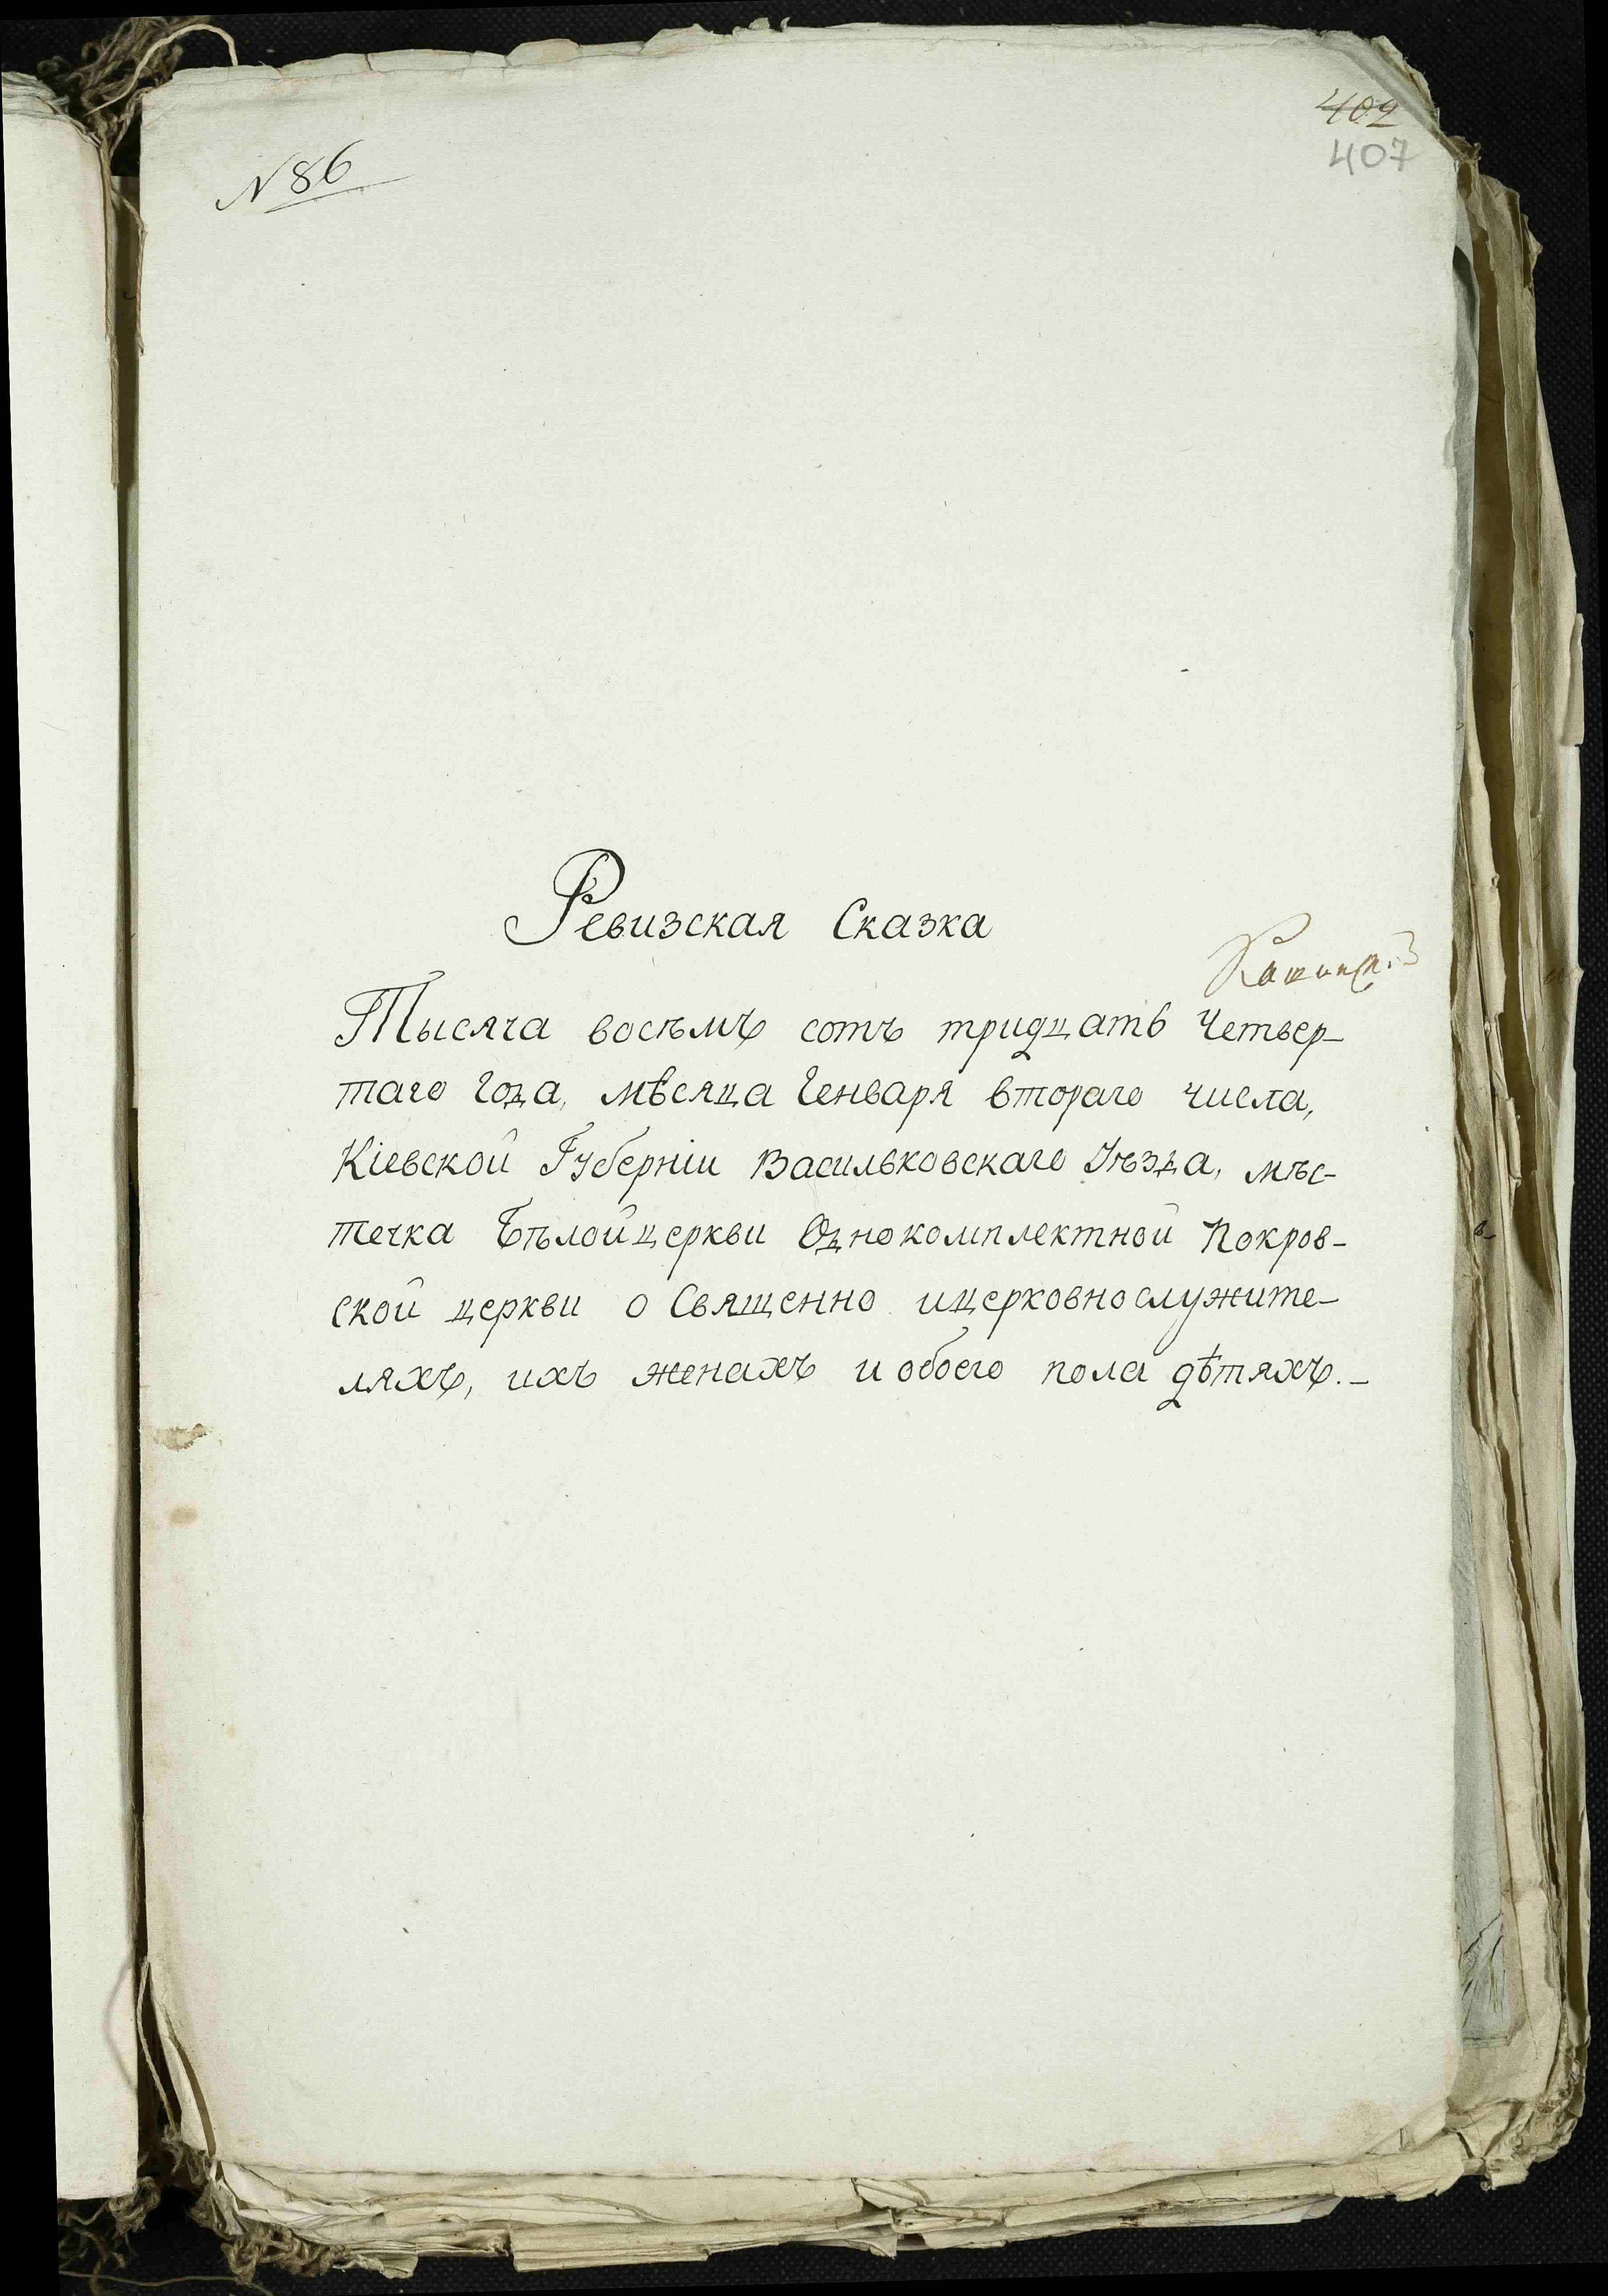 402
407
N 86
Ревизская Сказка
Тысяча восъмъ сотъ тридцать Четвер-
таго Года, мѣсяца Генваря втораго числа,
Кіевской Губерніи Васильковскаго Уѣзда, мѣс-
течка Бѣлойцеркви Однокомплектной Покров-
ской церкви о Священно ицерковнослужите-
ляхъ, ихъ женахъ и обоего пола дѣтяхъ.-